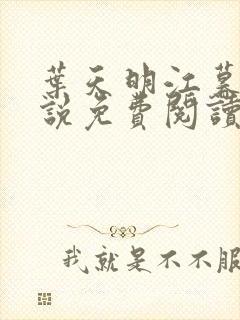 葉天明江慕
說免費閱讀
我就是不不服